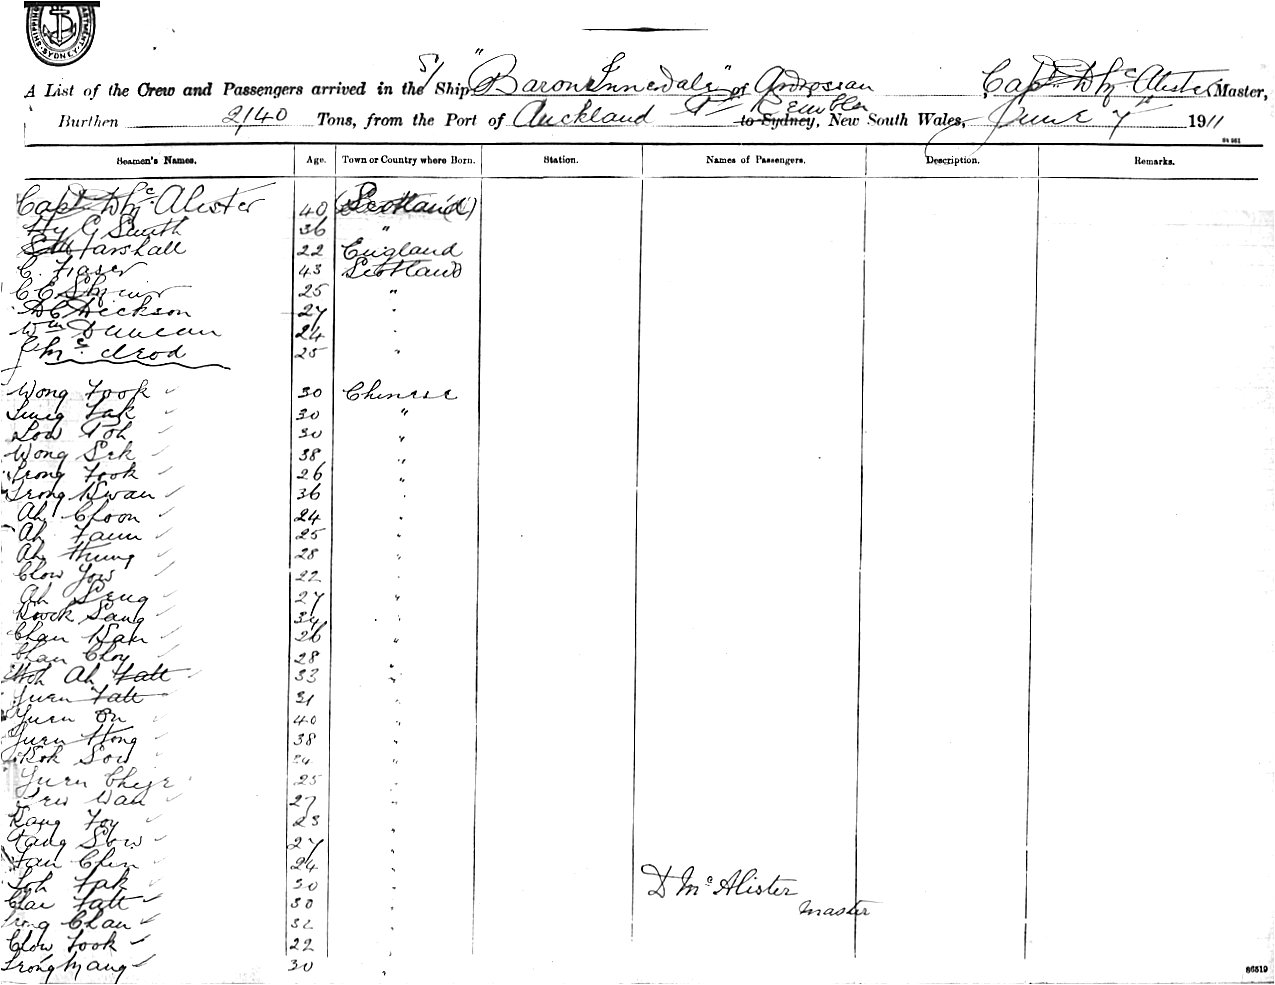 SHIPPING DEPARTMENT SYDNEY
A List of the Crew and Passengers arrived in the S/ Ship "Baron Innerdale" of Androssan Capt D Mc Alister Master,
Burthen 2140 Tons, from the Port of Auckland To Kembler to Sydney, New South Wales, June 7th 1911
Seamen's Names. Age. Town or Country where Born. Station. Names of Passengers. Description. Remarks.
Capt D Mc Alister 40 (Scotland)
Hy G Smith 36 "
Marshall 22 England
C. Fraser 43 Scotland
C E 25 "
D C Dickson 27 "
Wm Duncan 24 "
J Mc cleod 25 "
Wong Fook 30 Chinese
Fak 30 "
Low Toh 30 "
Wong Sek 38 "
Leong Fook 26 "
Leong Kwan 36 "
Ah Choon 24 "
Ah Faun 25 "
Ah Hung 28 "
Chow Yow 22 "
Ah Seng 27 "
Kwok Sang 34 "
Chan Kan 26 "
Chan Choy 28 "
Ah Fatt 33 "
Yuen Fatt 31 "
Yuen On 40 "
Yuen Hong 38 "
Kok Sow 34 "
Yuen 25 "
Wan 27 "
Kang Foy 23 "
Kang Sow 27 "
Fan Chin 24 "
Loh Fak 30 " D Mc Alister
Fatt 30 " Master
Leong Chan 32 "
Chow Fook 22 "
Leong Mang 30 "
86519